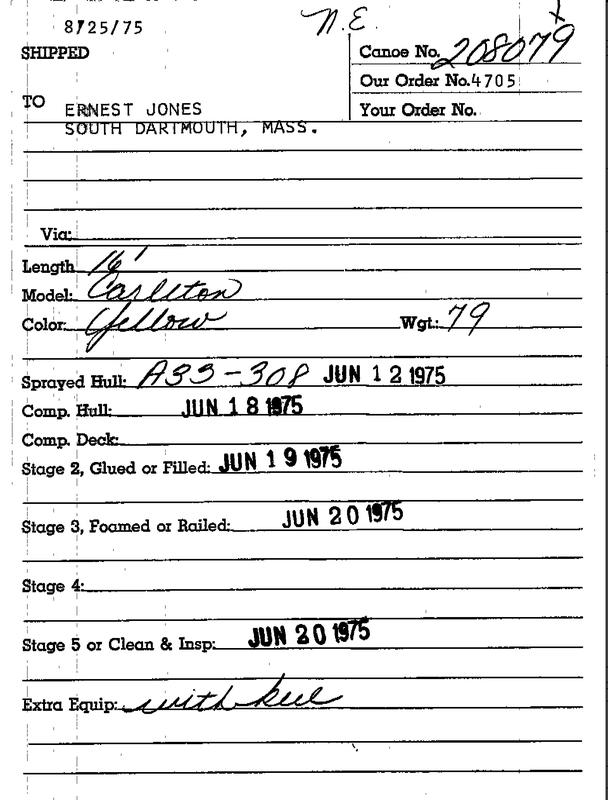 N.E.
8/25/75
SHIPPED
Canoe No. 208079
Our Order No. 4705
TO ERNEST JONES
Your Order No.
SOUTH DARTMOUTH, MASS.
Via:
Length 16'
Model: Carleton
Color: Yellow Wgt.: 79
Sprayed Hull: A33-308 JUN 12 1975
Comp. Hull: JUN 18 1975
Comp. Deck:
Stage 2, Glued or Filled: JUN 19 1975
Stage 3, Foamed or Railed: JUN 20 1975
Stage 4:
Stage 5 or Clean & Insp: JUN 20 1975
Extra Equip: with keel